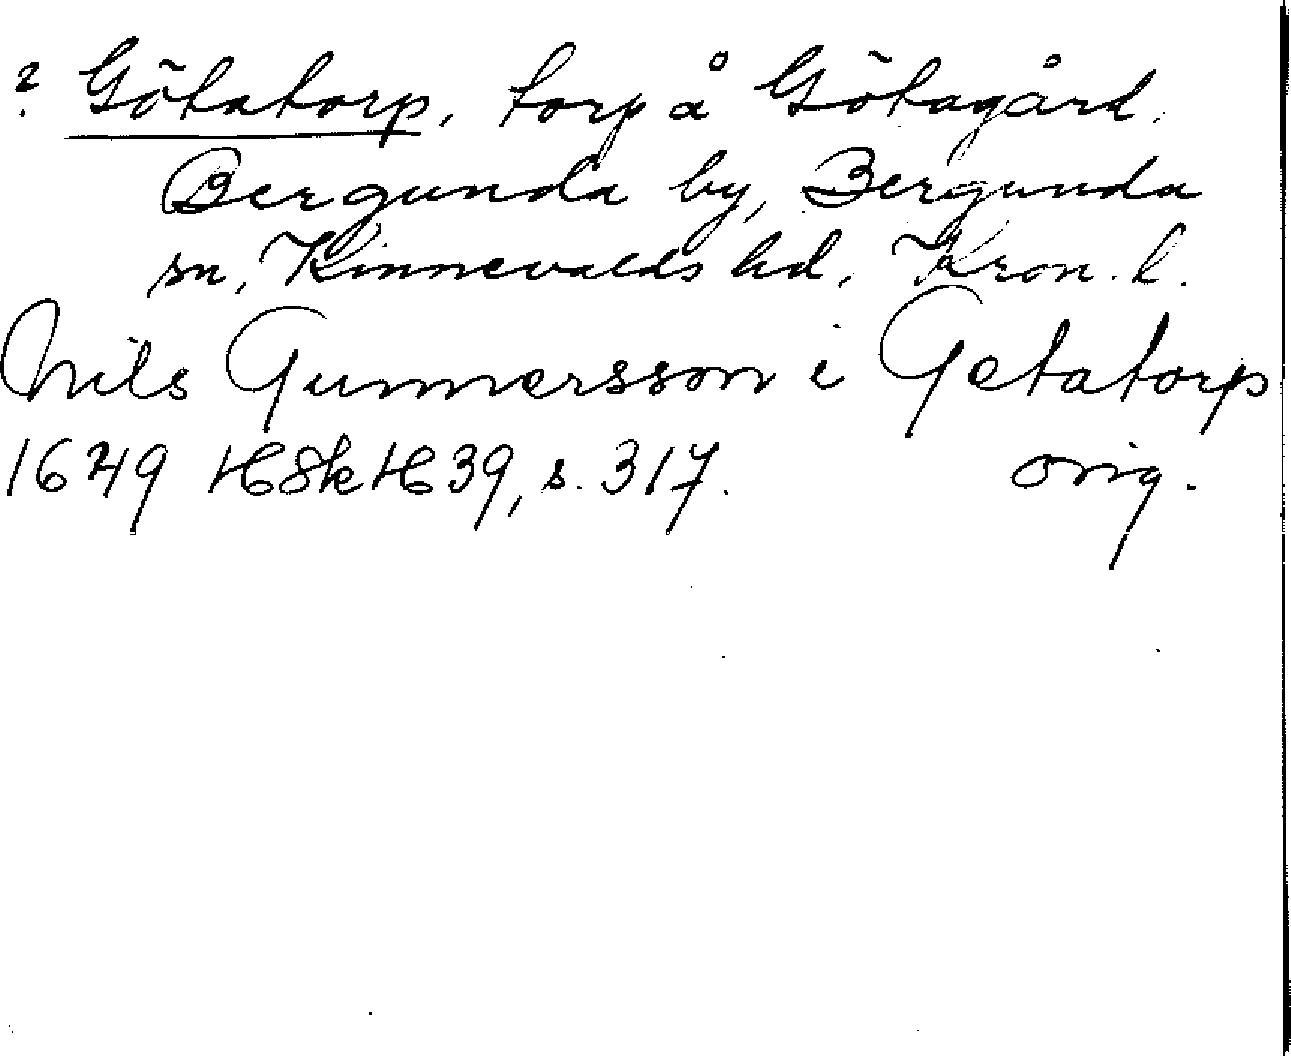 ? Götatorp, torp å Götagård,
Bergunda by, Bergunda
sn, Kinnevalds hd, Kron. l.
Nils Gunnersson i Getatorp
1649 HSkH 39, s. 317. orig.